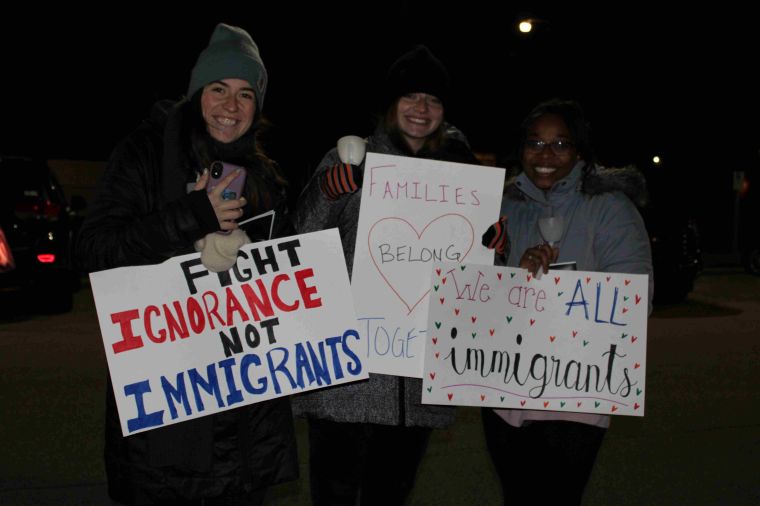 FIGHT
IGNORANCE
NOT
IMMIGRANTS
FAMILIES
BELONG
We are ALL
immigrants